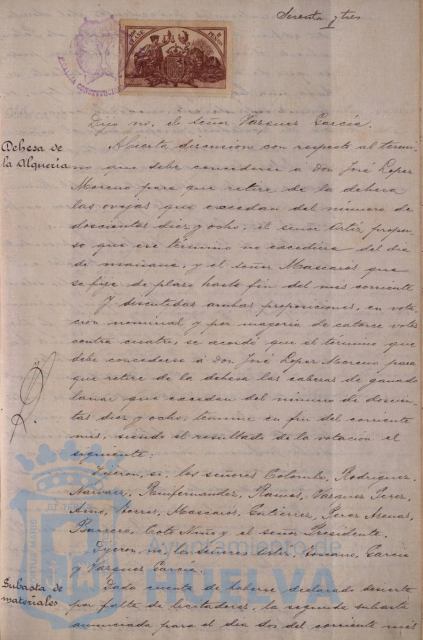 Sesenta y tres
Dijo no, el señor Vázquez García.
Dehesa de
la Alquería
Abierta discusión con respecto al térmi-
no que debe concederse a don José López
Moreno para que retire de la dehesa
las ovejas que excedan del número de
doscientas diez y ocho; el señor Ortiz propu-
so que ese término no excediera del día
de mañana, y el señor Mascarós que
se fije de plazo hasta fin del mes corriente.
Y discutidas ambas proposiciones, en vota-
ción nominal y por mayoría de catorce votos
contra cuatro, se acordó que el término que
debe concederse a don José López Moreno para
que retire de la dehesa las cabezas de ganado
lanar que excedan del número de doscien-
tas diez y ocho, termine en fin del corriente
mes, siendo el resultado de la votación el
siguiente:
Dijeron, sí, los señores Colombo, Rodríguez,
Narváez, Ramos, Vázquez Pérez,
Mascarós, Gutiérrez, Pérez
Barrero, Coto Núñez y el señor Presidente.
Dijeron, no, los señores García
y Vázquez García.
Subasta de
materiales
Dada cuenta de haberse declarado desierta
por falta de licitadores, la segunda subasta
anunciada para el día dos del corriente mes
Ayuntamiento de
HUELVA